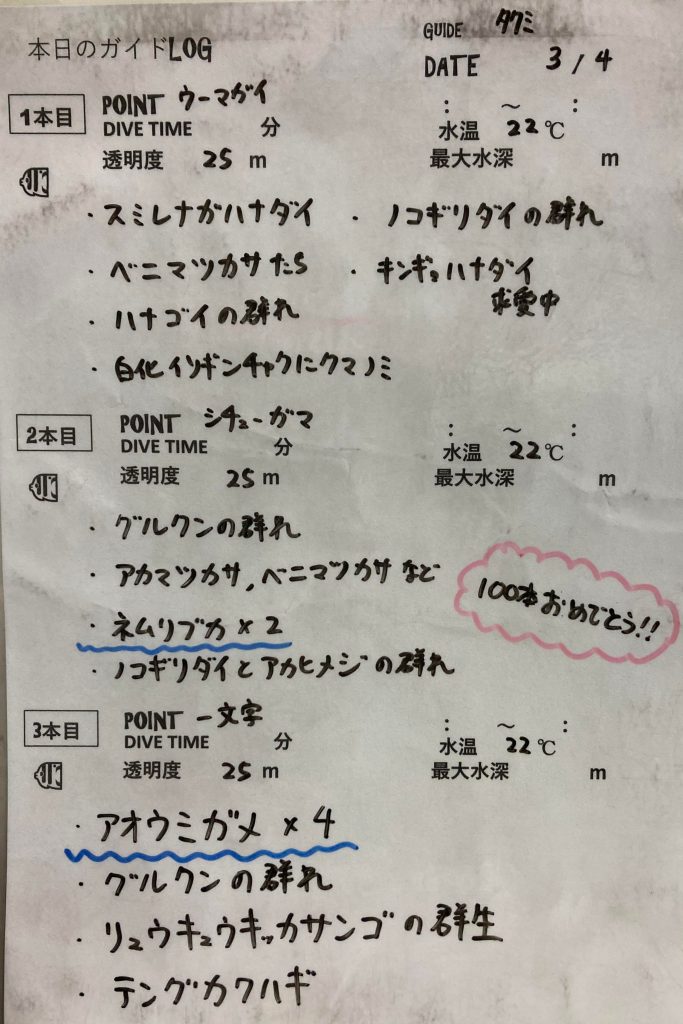 本日のガイドLOG
GUIDE タクミ
DATE 3 / 4
1本目 POINT ウーマガイ : ～ :
DIVE TIME 分 水温 22℃
透明度 25 m 最大水深 m
・スミレナガハナダイ ・ノコギリダイの群れ
・ベニマツカサたち ・キンギョハナダイ
求愛中
・ハナゴイの群れ
・白化イソギンチャクにクマノミ
2本目 POINT シチューガマ : ～ :
DIVE TIME 分 水温 22℃
透明度 25 m 最大水深 m
・グルクンの群れ
・アカマツカサ, ベニマツカサなど
100本おめでとう!!
・ネムリブカ×2
・ノコギリダイとアカヒメジの群れ
3本目 POINT 一文字 : ～ :
DIVE TIME 分 水温 22℃
透明度 25 m 最大水深 m
・アオウミガメ×4
・グルクンの群れ
・リュウキュウキッカサンゴの群生
・テングカワハギ